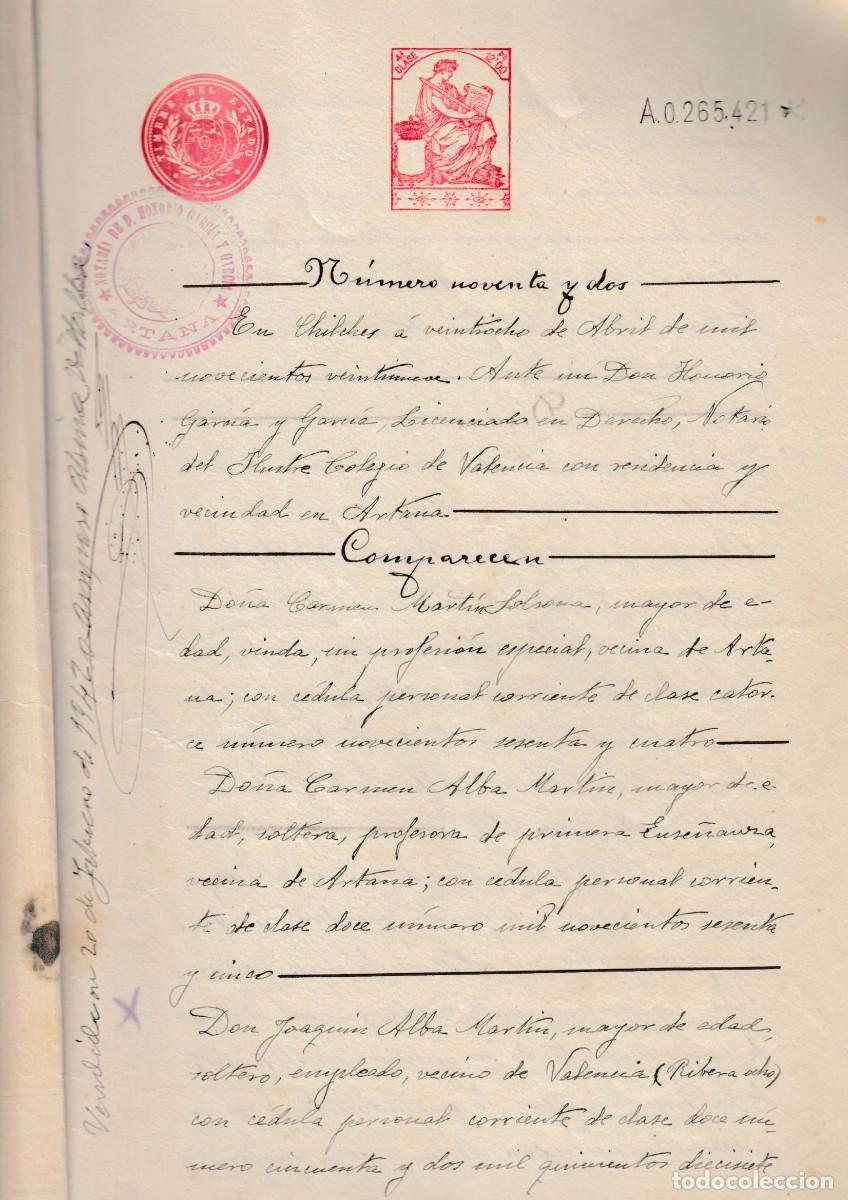 TIMBRE DEL ESTADO
4ª CLASE
12'00
A.0.265.421
NOTARÍA DE D. HONORIO GARCÍA Y GARCÍA
ARTANA
Número noventa y dos
En Chilches á veintiocho de Abril de mil
novecientos veintinueve. Ante mi Don Honorio
García y García, Licenciado en Derecho, Notario
del Ilustre Colegio de Valencia con residencia y
vecindad en Artana
Comparecen
Doña Carmen Martín Solsona, mayor de e-
dad, viuda, sin profesión especial, vecina de Arta-
na; con cédula personal corriente de clase cator-
ce número novecientos sesenta y cuatro
Doña Carmen Alba Martín, mayor de e-
dad, soltera, profesora de primera Enseñanza,
vecina de Artana; con cédula personal corrien-
te de clase doce número mil novecientos sesenta
y cinco
Don Joaquin Alba Martín, mayor de edad,
soltero, empleado, vecino de Valencia (Ribera ocho)
con cédula personal corriente de clase doce nú-
mero cincuenta y dos mil quinientos diecisiete
20 de Febrero de 1942 a
todocoleccion